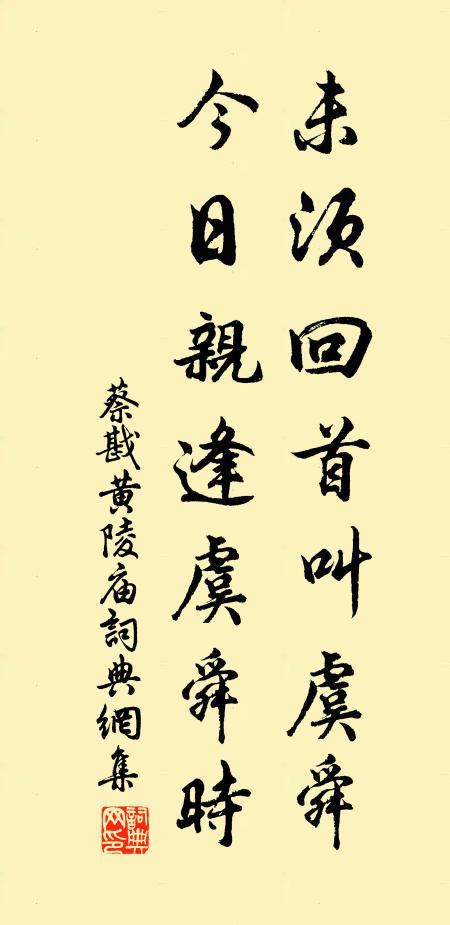 未須回首叫虞舜
今日親逢虞舜時
蔡戡黄陵庙詞典網集
詞典網印